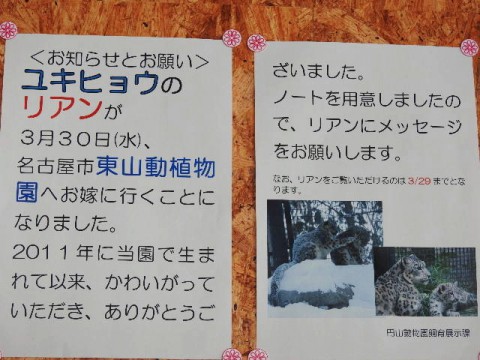 ＜お知らせとお願い＞
ユキヒョウの
リアンが
３月３０日(水)、
名古屋市東山動植物
園へお嫁に行くことに
なりました。
２０１１年に当園で生ま
れて以来、かわいがって
いただき、ありがとうご
ざいました。
ノートを用意しましたの
で、リアンにメッセージ
をお願いします。
なお、リアンをご覧いただけるのは 3/29 までとな
ります。
円山動物園飼育展示課